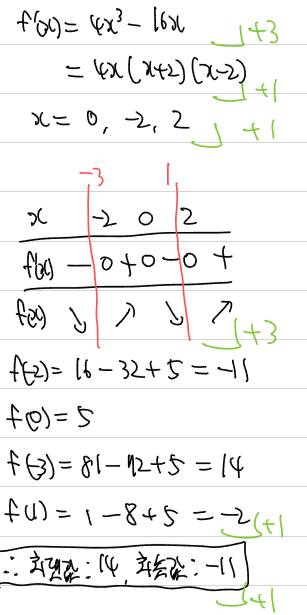 f'(x) = 4x³ - 16x +3
= 4x(x+2)(x-2) +1
x = 0, -2, 2 +1
-3 1
x -2 0 2
f'(x) - 0 + 0 - 0 +
f(x) ↘ ↗ ↘ ↗ +3
f(-2) = 16 - 32 + 5 = -11
f(0) = 5
f(-3) = 81 - 72 + 5 = 14
f(1) = 1 - 8 + 5 = -2 +1
∴ 최댓값 : 14, 최솟값 : -11
+1